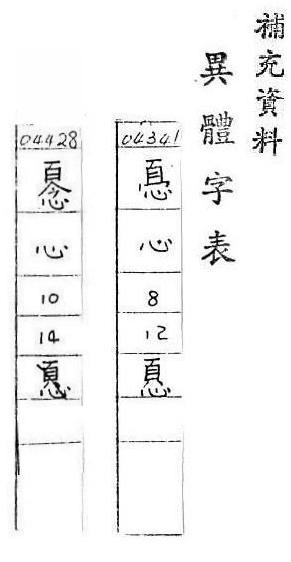 補充資料
異體字表
04341
心
8
12
04428
心
10
14